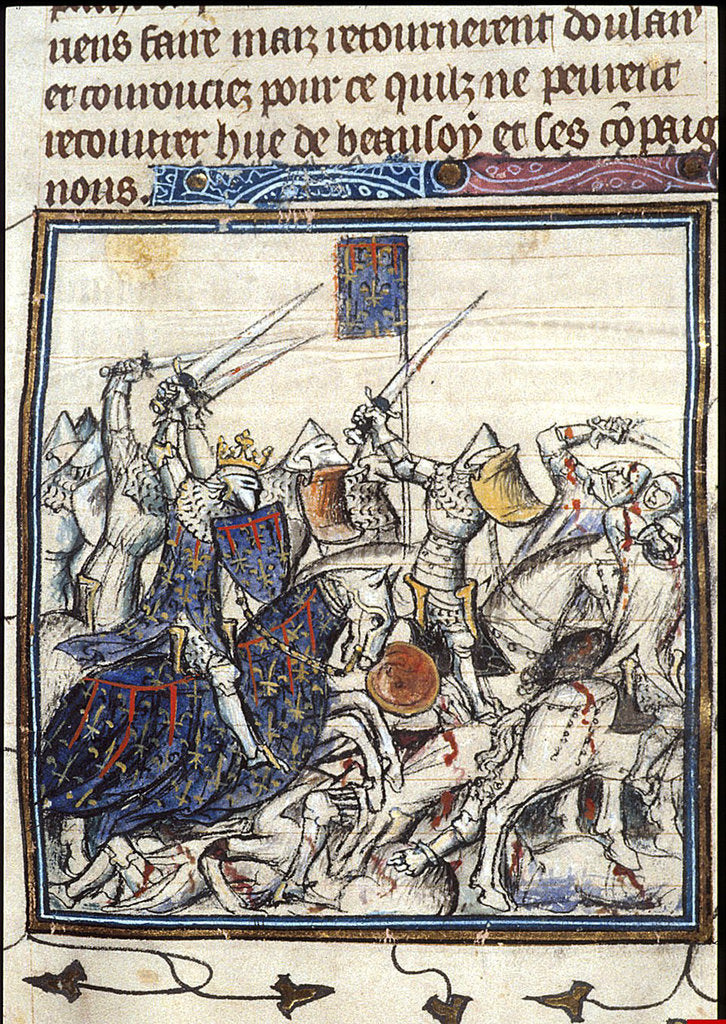 uens faire maiz retournerent doulan
et courouciez pour ce quilz ne peurent
recouurer hue de beausoÿ et ses cõpaig
nons.